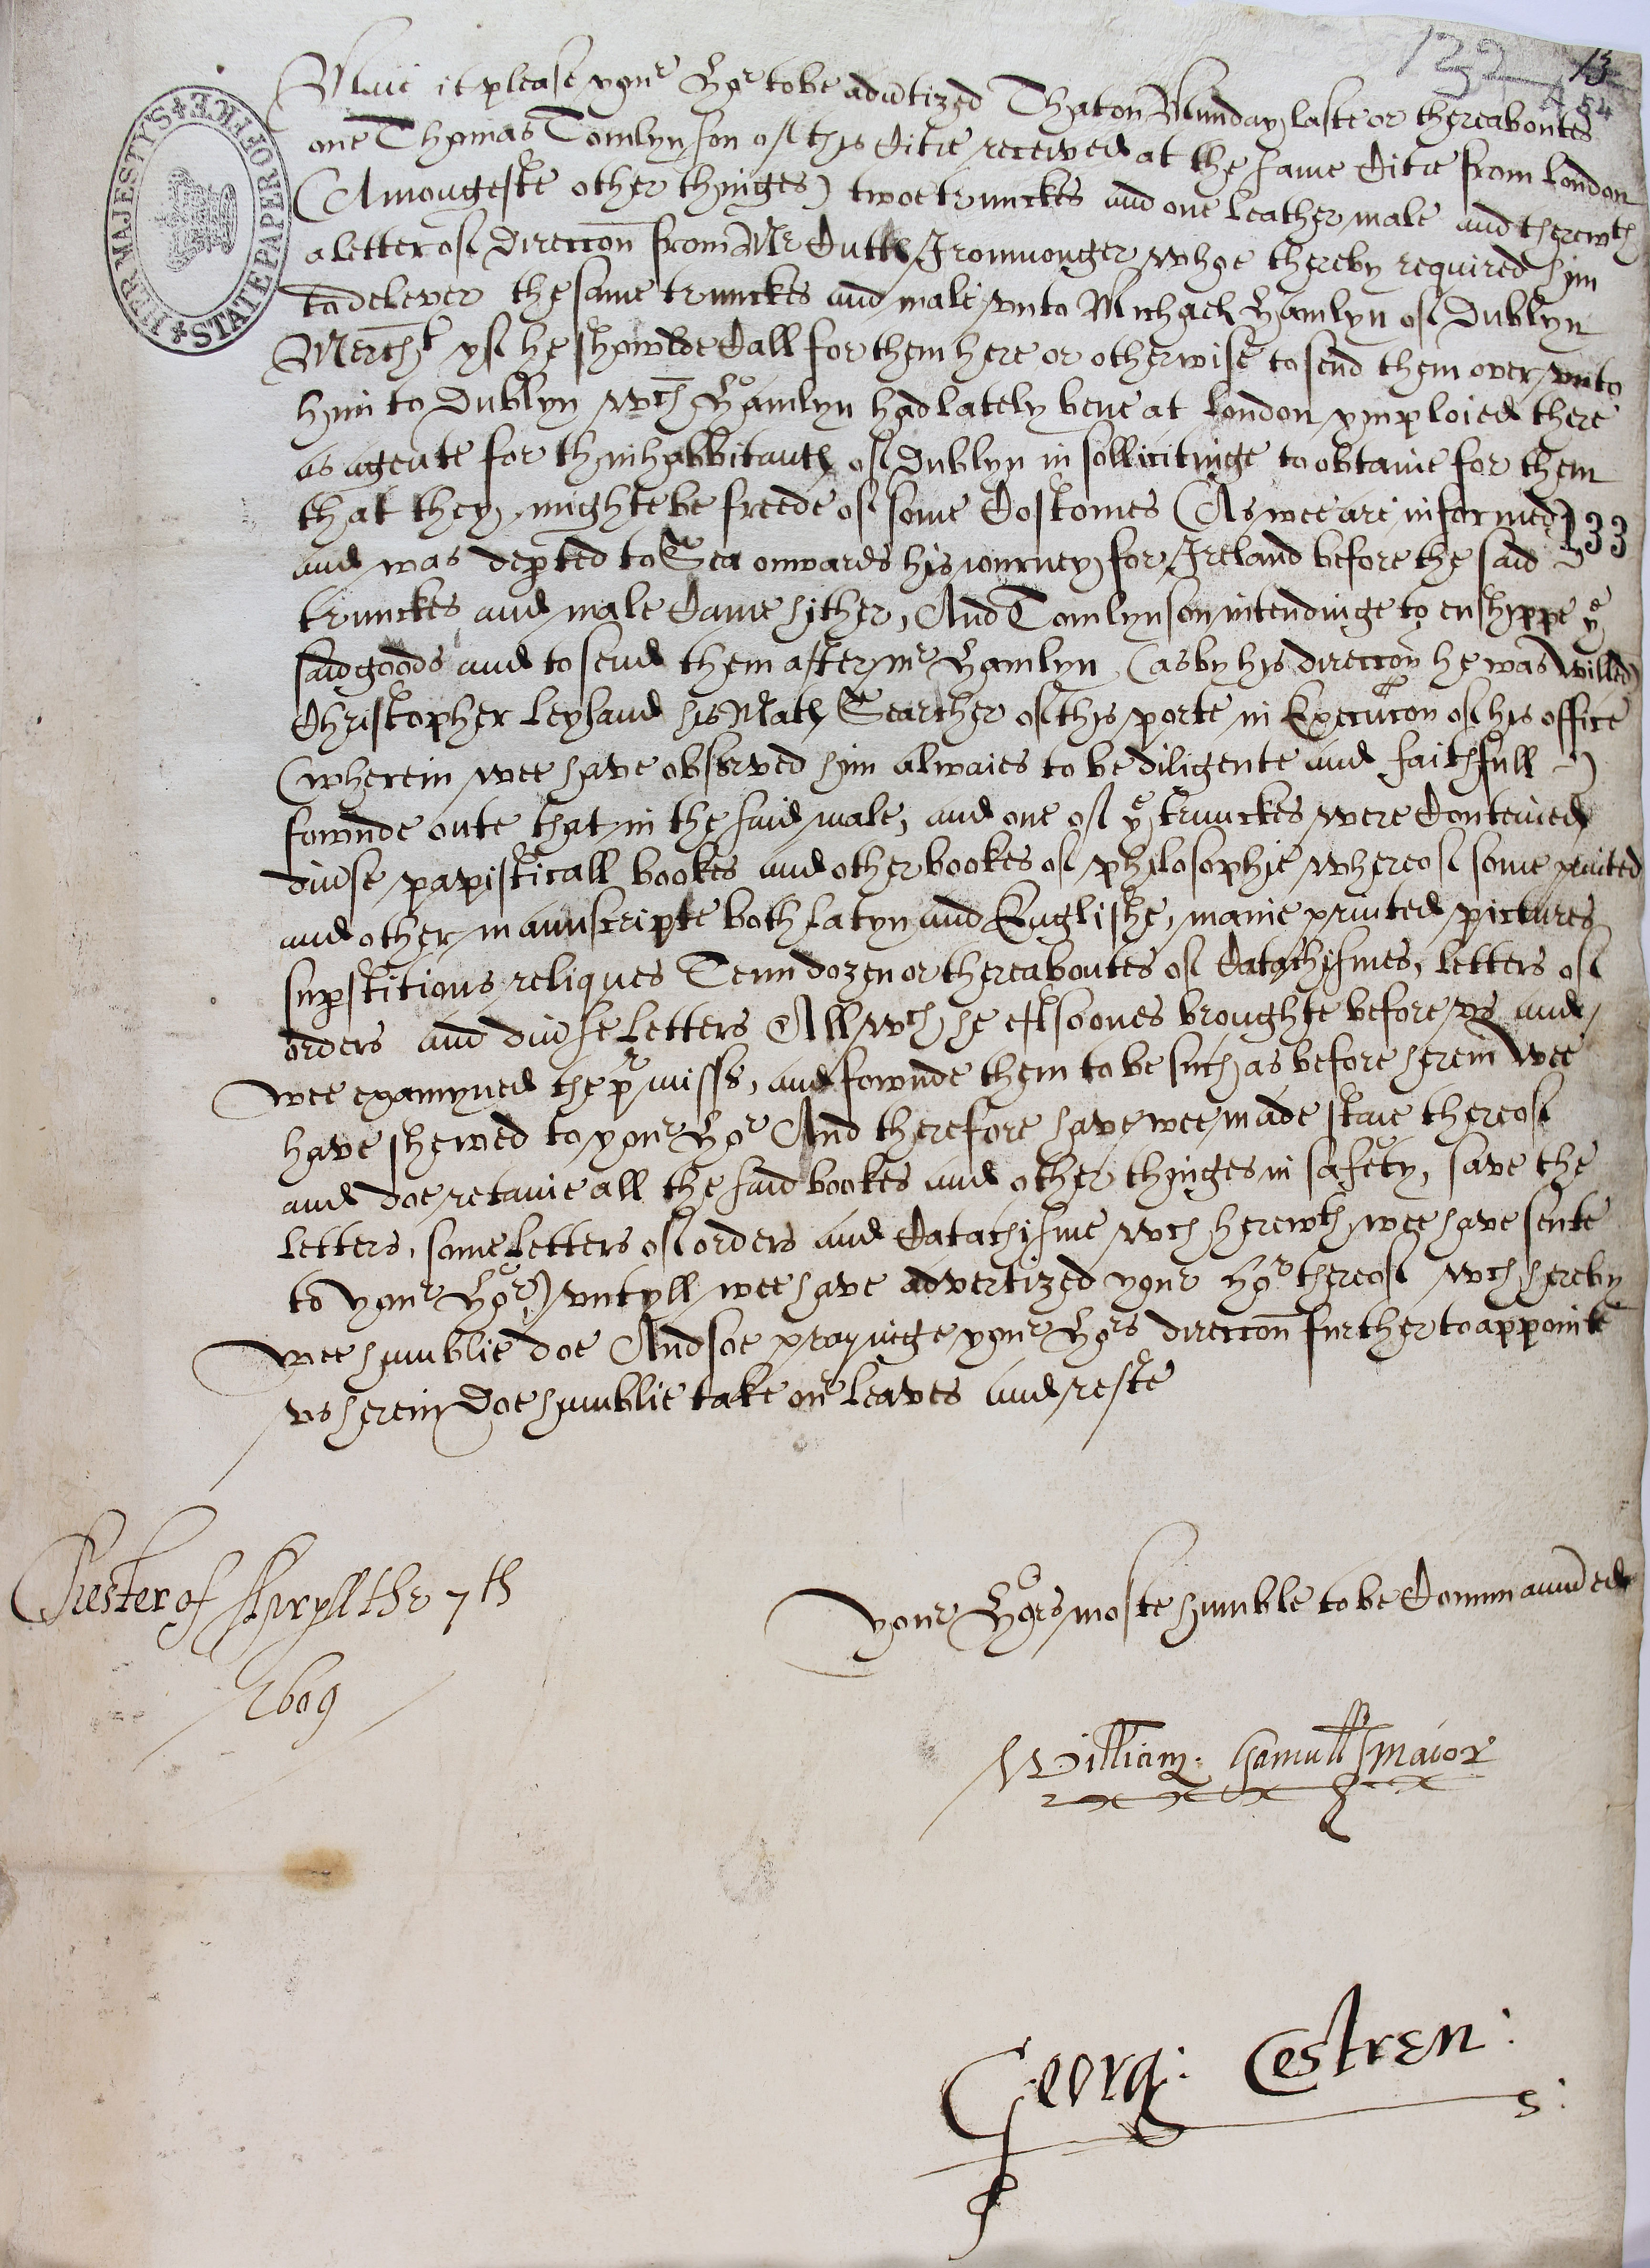 132
13
454
HER MAJESTY'S STATE PAPER OFFICE
Maie it please yor Hor to be adv'tized That on Munday laste or thereaboutes
one Thomas Tomlynson of this Citie received at the same Citie from London
(Amongeste other thinges) twoe trunckes and one leather male and therewth
a letter of direccon from Mr Cutts Ironmonger whoe thereby required him
to delever the same trunckes and male unto Michaell Hamlyn of Dublyn
Mercht yf he showlde Call for them here or otherwise to send them over unto
hym to Dublyn wch Hamlyn had lately bene at London ymploied there
as agente for thinhabbitants of Dublyn in sollicitinge to obtaine for them
that they mighte be freede of some Costomes (As wee are informed)
133
and was dep'ted to Sea onwards his iourney for Ireland before the said
trunckes and male Came hither, And Tomlynson intendinge to enshippe ye
said goods and to send them after mr Hamlyn (as by his direccon he was willed)
Christopher Leyland his Mats Searcher of this porte in Execucon of his office
(wherein wee have observed him alwaies to be diligente and faithfull)
fownde oute that in the said male, and one of ye trunckes were Conteined
div'se papisticall bookes and other bookes of philosophie whereof some printed
and other manuscripte both Latyn and Englishe, manie printed pictures
sup'stitious reliques Tenn dozen or thereaboutes of Catachismes, letters of
orders and div'se letters All wch he eftsoones broughte before us and
wee examyned the pr'misss, and fownde them to be such as before herein wee
have shewed to yor Hor And therefore have wee made staie thereof
and doe retaine all the said bookes and other thinges in safety, save the
letters, some letters of orders and Catachisme wch herewth wee have sente
to yor Hor) untyll wee have advertized yor Hor thereof wch hereby
wee humblie doe And soe prayinge yor Hors direccon further to appointe
us herein Doe humblie take or leaves and reste
Chester of Apryll the 7th
1609
Your Hors moste humble to be Commaunded
William: Gamull maior
Georg: Cestren: